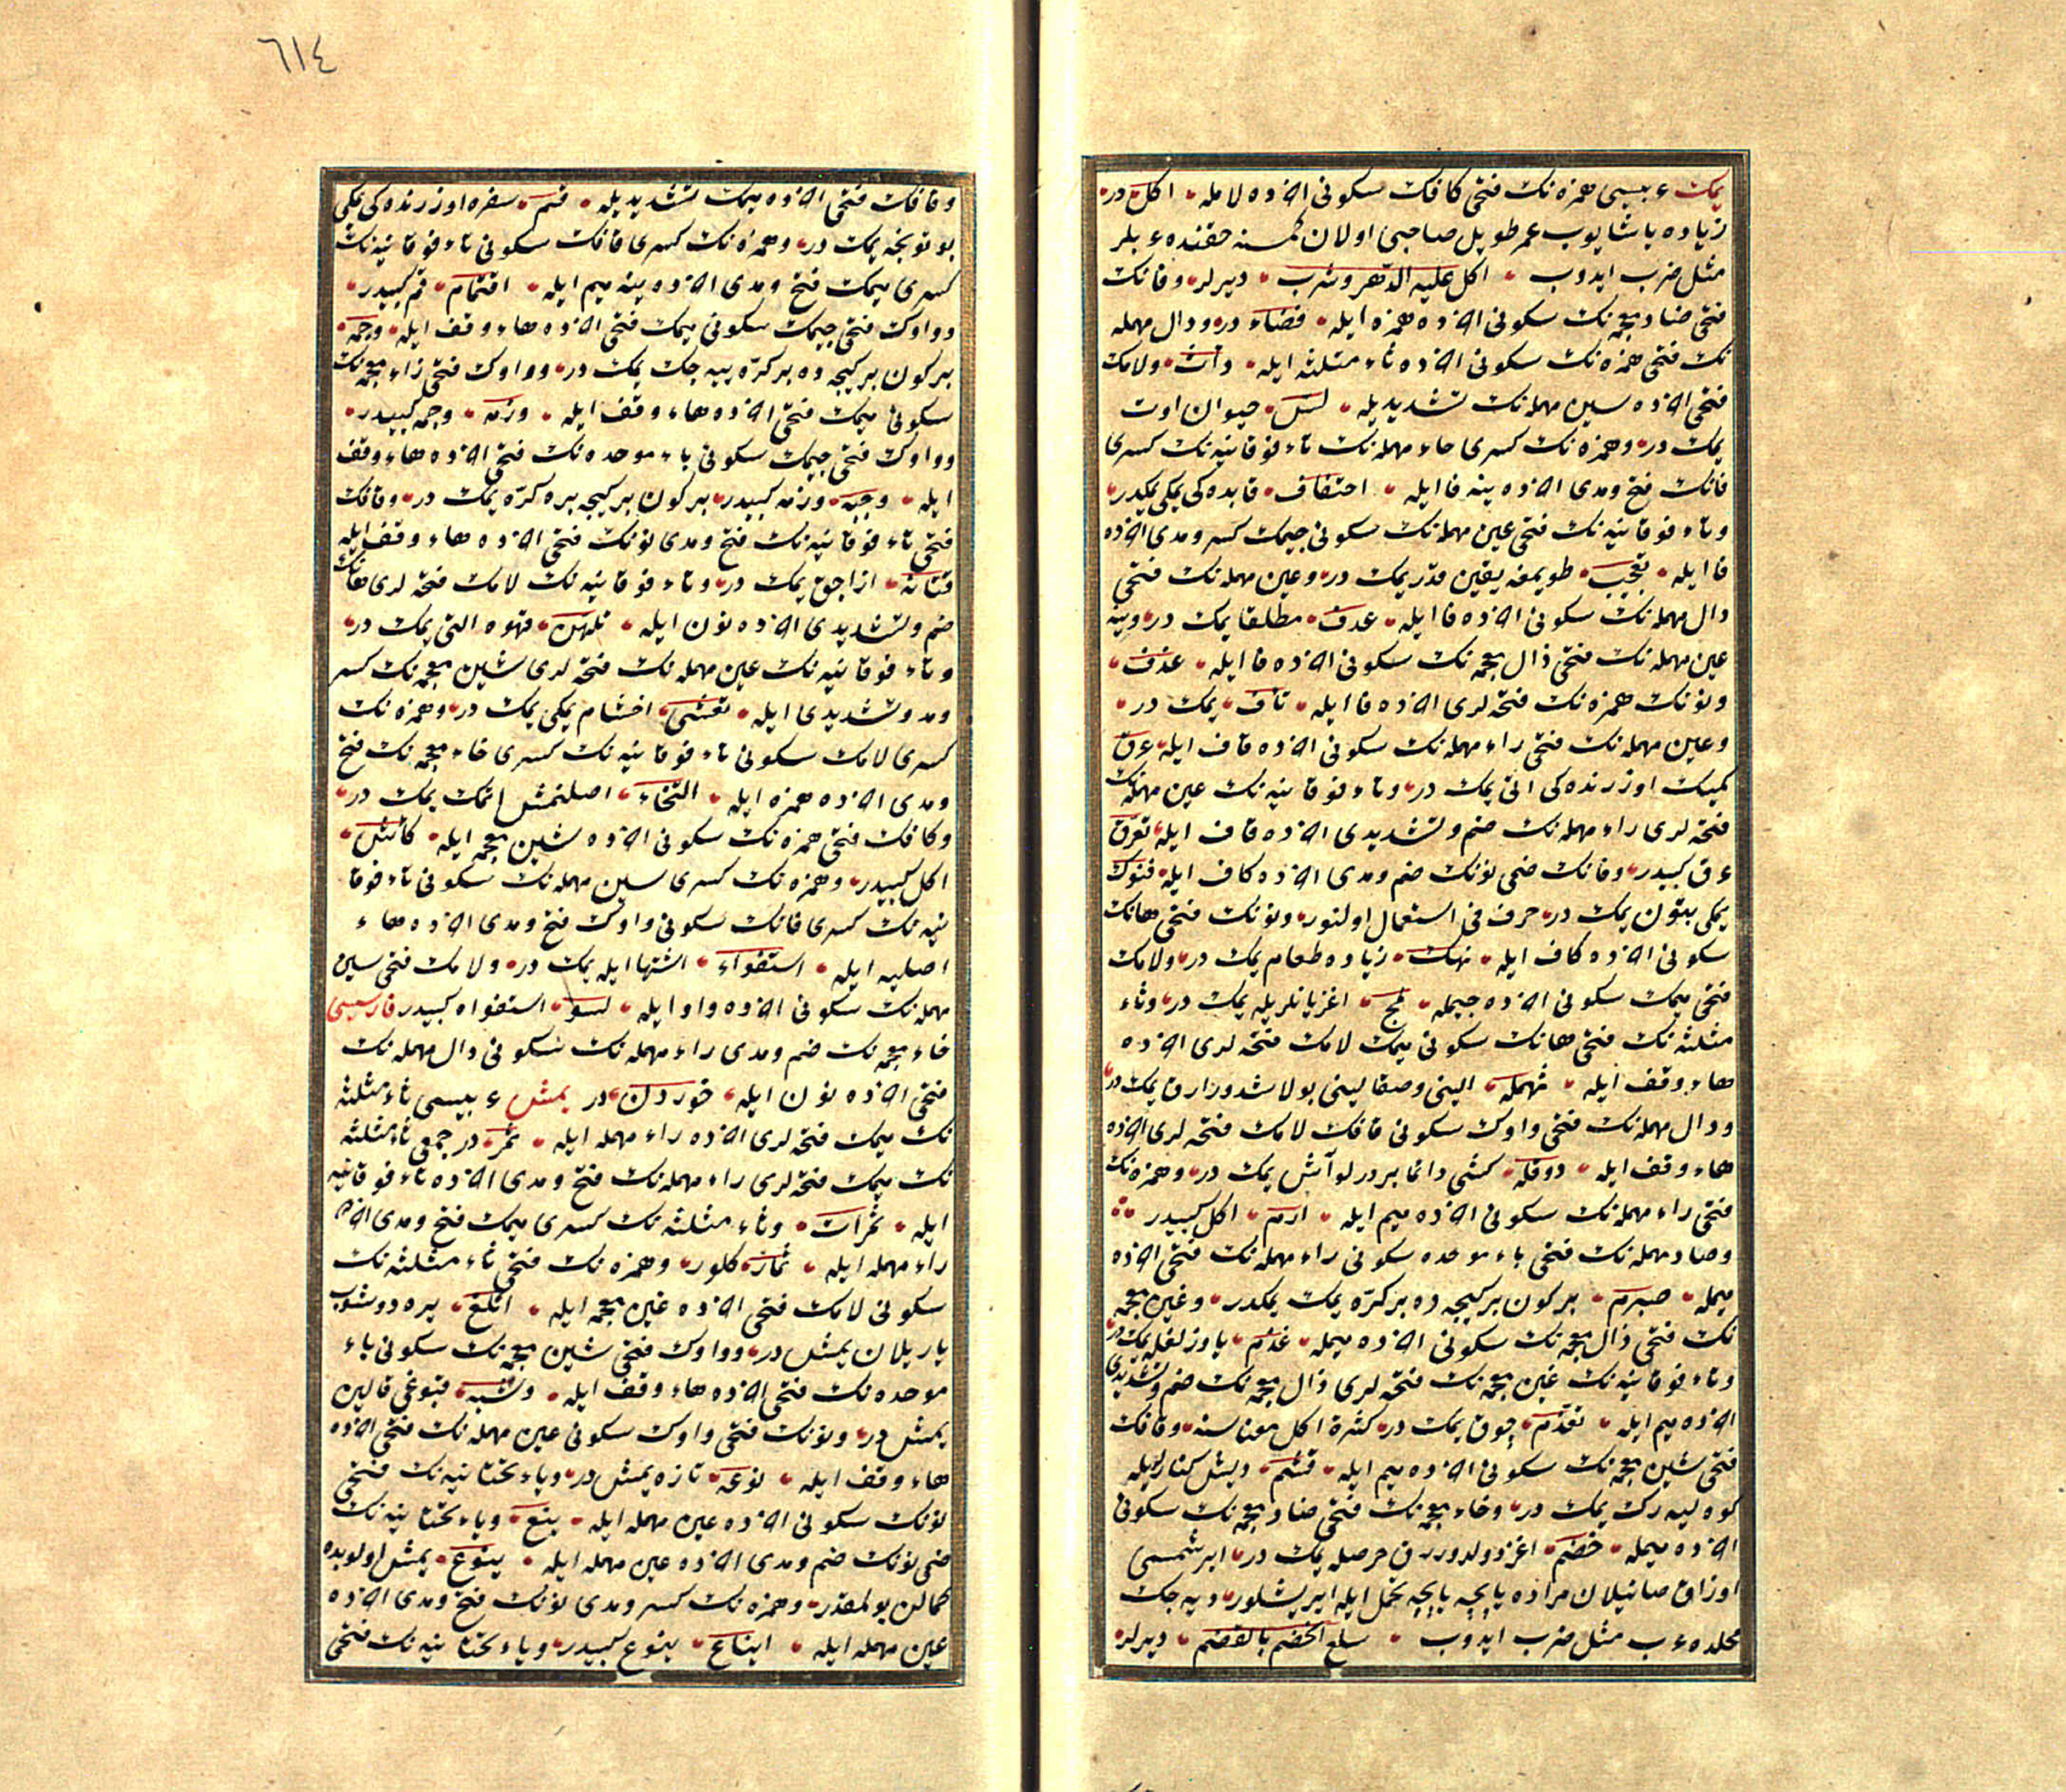 يمك عربيسى همزه نك فتحى كافك سكونى آخرده لامله اكل در
زياده ياشايوب عمر طويل صاحبى اولان كمسنه حقنده عربلر
مثل ضرب ايدوب اكل عليه الدهر وشرب ديرلر وقافك
فتحى ضاد معجمه نك سكونى آخرده همزه ايله قضاء در ودال مهمله
نك فتحى همزه نك سكونى آخرده ثاء مثلثه ايله دأث ولامك
فتحى آخرده سين مهمله نك تشديديله لس حيوان اوت
يمك در وهمزه نك كسرى حاء مهمله نك تاء فوقانيه نك كسرى
فانك فتح ومدى آخرده ينه فا ايله احتفاف قابده كى يمكى يمكدر
وتاء فوقانيه نك فتحى عين مهمله نك سكونى جيمك كسر ومدى آخرده
فا ايله تعجيف طويمغه يقين قدر يمك در وعين مهمله نك فتحى
دال مهمله نك سكونى آخرده فا ايله عدف مطلقا يمك در وينه
عين مهمله نك فتحى ذال معجمه نك سكونى آخرده فا ايله عذف
ونونك همزه نك فتحه لرى آخرده فا ايله نأف يمك در
وعين مهمله نك فتحى راء مهمله نك سكونى آخرده قاف ايله عرق
كميك اوزرنده كى اتى يمك در وتاء فوقانيه نك عين مهمله نك
فتحه لرى راء مهمله نك ضم وتشديدى آخرده قاف ايله تعرق
عرق كبيدر وفانك ضمى نونك ضم ومدى آخرده كاف ايله فنوك
يمكى بتون يمك در حرف فى استعمال اولنور ونونك فتحى هانك
سكونى آخرده كاف ايله نهك زياده طعام يمك در ولامك
فتحى ميمك سكونى آخرده جيمله لمج اغز يانلريله يمك در وثاء
مثلثه نك فتحى هانك سكونى ميمك لامك فتحه لرى آخرده
هاء وقف ايله ثهمله الينى وصقالينى بولاشدورارق يمك در
ودال مهمله نك فتحى واوك سكونى قافك لامك فتحه لرى آخرده
هاء وقف ايله دوقله كشى دائما بر درلو آش يمك در وهمزه نك
فتحى راء مهمله نك سكونى آخرده ميم ايله ارم اكل كبيدر
وصاد مهمله نك فتحى باء موحده سكونى راء مهمله نك فتحى آخرده
ميمله صبرم بر كون بر كيجه ده بر كره يمك يمكدر وغين معجمه
نك فتحى ذال معجمه نك سكونى آخرده ميمله غذم ياوزلغله يمك در
وتاء فوقانيه نك غين معجمه نك فتحه لرى ذال معجمه نك ضم وتشديدى
آخرده ميم ايله تغذم چوق يمك در كثرة اكل معناسنه وقافك
فتحى شين معجمه نك سكونى آخرده ميم ايله قشم ديش كنارليله
كوه ليه رك يمك در وخاء معجمه نك فتحى ضاد معجمه نك سكونى
آخرده ميمله خضم اغز دولدوررق حرصله يمك در
اوزاق صانيلان مراده يابجه يابجه تحمل ايله ايريشلور ديه جك
محلده عرب مثل ضرب ايدوب يبلغ الخضم بالقضم ديرلر
وقافك فتحى آخرده ميمك تشديديله قم سفره اوزرنده كى يمكى
بوتونجه يمك در وهمزه نك كسرى قافك سكونى تاء فوقانيه نك
كسرى ميمك فتح ومدى آخرده ينه ميم ايله اقتمام قم كبيدر
وواوك فتحى جيمك سكونى ميمك فتحى آخرده هاء وقف ايله وجمه
بر كون بر كيجه ده بر كره ييه جك يمك در وواوك فتحى زاء معجمه نك
سكونى ميمك فتحى آخرده هاء وقف ايله وزمه وجمه كبيدر
وواوك فتحى جيمك سكونى باء موحده نك فتحى آخرده هاء وقف
ايله وجبه وزمه كبيدر بر كون بر كيجه بره كره يمك در وقافك
فتحى تاء فوقانيه نك فتح ومدى نونك فتحى آخرده هاء وقف ايله
قتانه ازاجق يمك در وتاء فوقانيه نك لامك فتحه لرى هانك
ضم وتشديدى آخرده نون ايله تلهن قهوه التى يمك در
وتاء فوقانيه نك عين مهمله نك فتحه لرى شين معجمه نك كسر
ومد وتشديدى ايله تعشى اخشام يمكى يمك در وهمزه نك
كسرى لامك سكونى تاء فوقانيه نك كسرى خاء معجمه نك فتح
ومدى آخرده همزه ايله التخاء اصلنمش اتمك يمك در
وكافك فتحى همزه نك سكونى آخرده شين معجمه ايله كأش
اكل كبيدر وهمزه نك كسرى سين مهمله نك سكونى تاء فوقا
نيه نك كسرى فانك سكونى واوك فتح ومدى آخرده هاء
اصليه ايله استفواه اشتها ايله يمك در ولامك فتحى سين
مهمله نك سكونى آخرده واو ايله لسو استفواه كبيدر فارسيسى
خاء معجمه نك ضم ومدى راء مهمله نك سكونى دال مهمله نك
فتحى آخرده نون ايله خوردن در يمش عربيسى ثاء مثلثه
نك ميمك فتحه لرى آخرده راء مهمله ايله ثمر در جمعى ثاء مثلثه
نك ميمك فتحه لرى راء مهمله نك فتح ومدى آخرده تاء فوقانيه
ايله ثمرات وثاء مثلثه نك كسرى ميمك فتح ومدى آخرده
راء مهمله ايله ثمار كلور وهمزه نك فتحى ثاء مثلثه نك
سكونى لامك فتحى آخرده غين معجمه ايله اثلغ يره دوشوب
ياريلان يمش در وواوك فتحى شين معجمه نك سكونى باء
موحده نك فتحى آخرده هاء وقف ايله وشبه قبوغى قالين
يمش در ونونك فتحى واوك سكونى عين مهمله نك فتحى آخرده
هاء وقف ايله نوعه تازه يمش در وياء تحتانيه نك فتحى
نونك سكونى آخرده عين مهمله ايله ينع وياء تحتانيه نك
ضمى نونك ضم ومدى آخرده عين مهمله ايله ينوع يمش اولوبده
كمالن بولمقدر وهمزه نك كسر ومدى نونك فتح ومدى آخرده
عين مهمله ايله ايناع ينوع كبيدر وياء تحتانيه نك فتحى
٦١٤